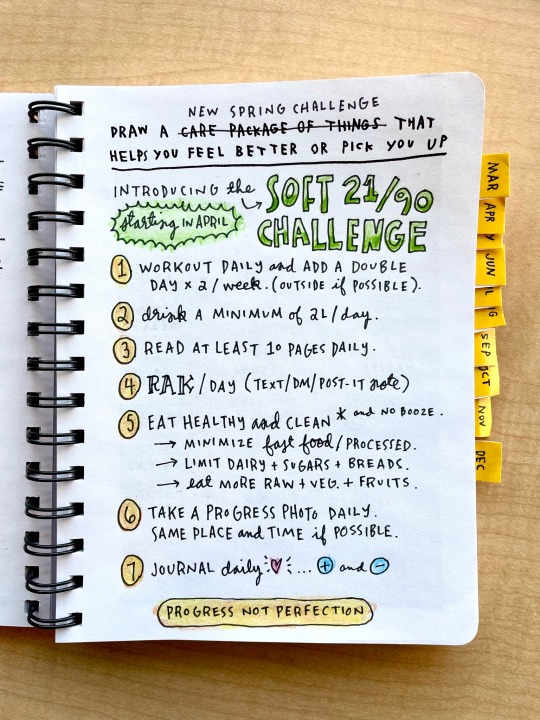 NEW SPRING CHALLENGE
DRAW A CARE PACKAGE OF THINGS THAT
HELPS YOU FEEL BETTER OR PICK YOU UP
INTRODUCING the
SOFT 21/90
starting IN APRIL
CHALLENGE
1 WORKOUT DAILY and ADD A DOUBLE
DAY x 2/week. (OUTSIDE if POSSIBLE).
2 drink A MINIMUM of 2L/day.
3 READ AT LEAST 10 PAGES DAILY.
4 RAK/DAY (TEXT/DM/POST-IT note)
5 EAT HEALTHY and CLEAN * and NO BOOZE.
→ MINIMIZE fast food/PROCESSED.
→ LIMIT DAIRY + SUGARS + BREADS.
→ eat MORE RAW + VEG. + FRUITS.
6 TAKE A PROGRESS PHOTO DAILY.
SAME PLACE and TIME if POSSIBLE.
7 JOURNAL daily ... + and -
PROGRESS NOT PERFECTION
MAR
APR
JUN
SEP
OCT
NOV
DEC